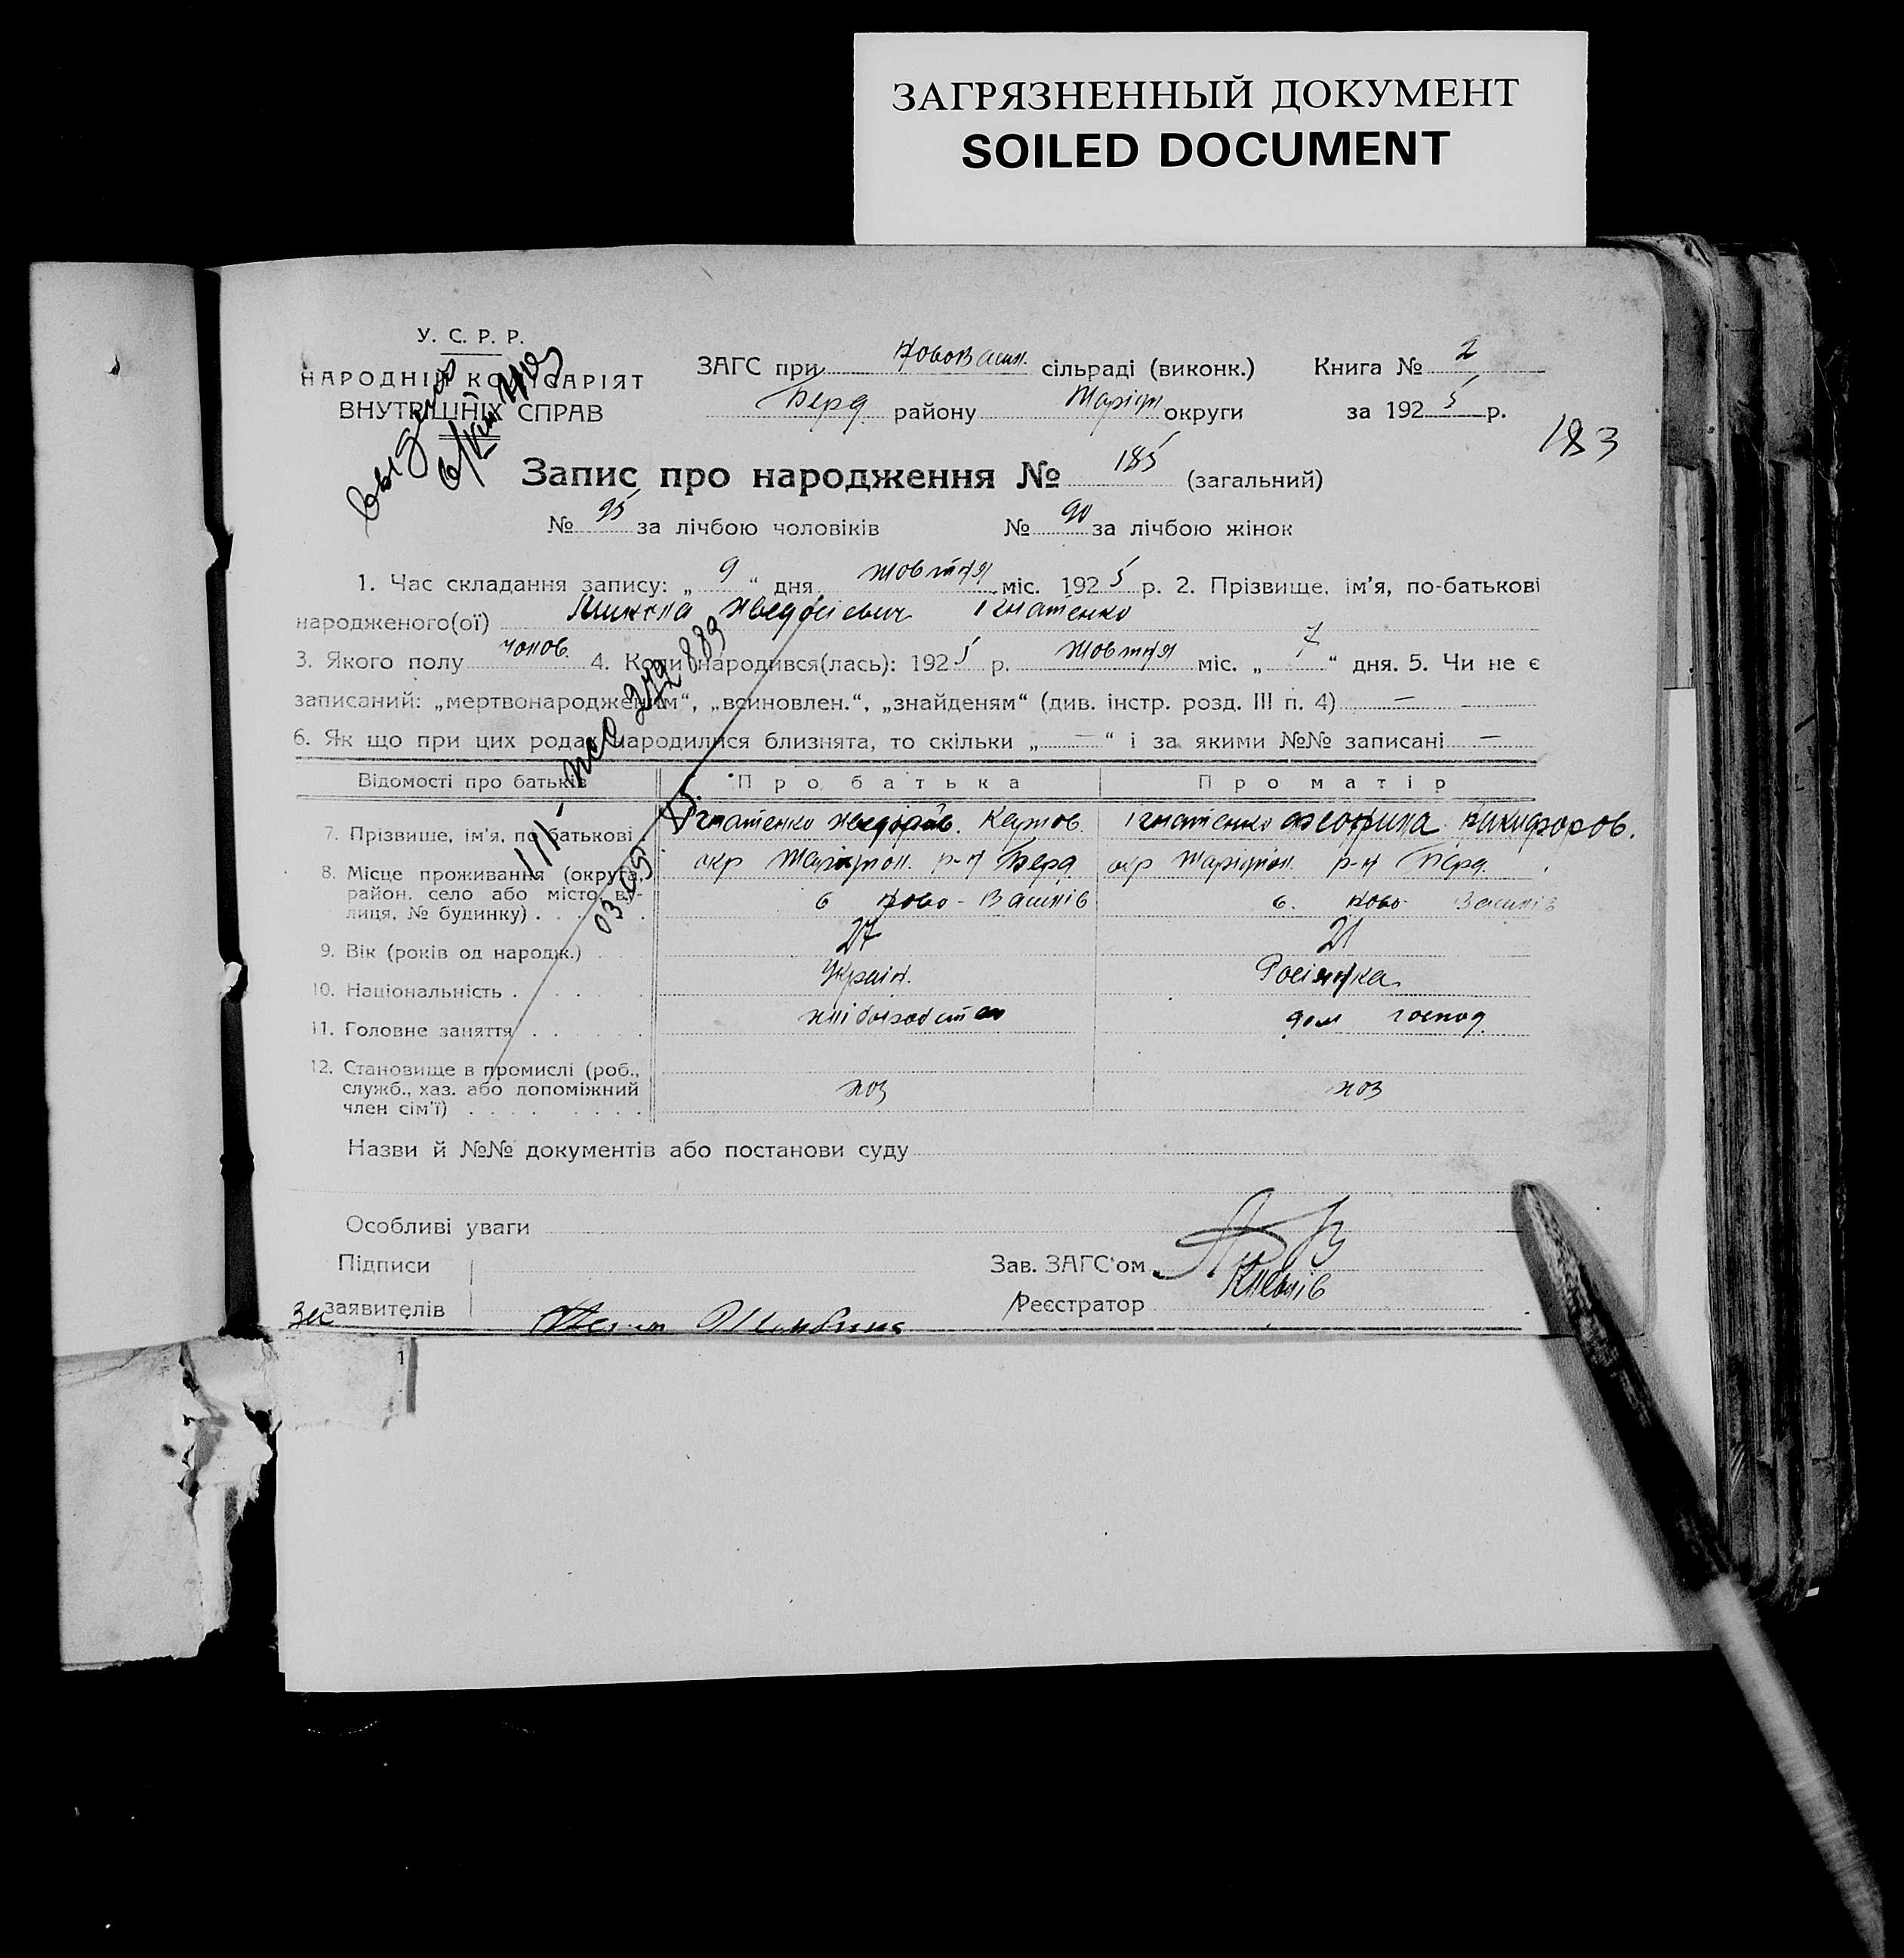 ЗАГРЯЗНЕННЫЙ ДОКУМЕНТ
SOILED DOCUMENT
У. С. Р. Р.
НАРОДНІЙ КОМІСАРІЯТ
ВНУТРІШНІХ СПРАВ
ЗАГС при НовоВасил. сільраді (виконк.) Книга № 2
Берд. району Маріуп округи за 1925 р.
183
Запис про народження № 185 (загальний)
№ 95 за лічбою чоловіків № 90 за лічбою жінок
1. Час складання запису: „ 9 “ дня жовтня міс. 1925 р. 2. Прізвище, ім'я, по-батькові
народженого(ої) Микола Ігнатенко
3. Якого полу чолов. 4. Коли народився(лась): 1925 р. жовтня міс. „ 7 “ дня. 5. Чи не є
записаний: „мертвонародженим“, „всиновлен.“, „знайденям“ (див. інстр. розд. III п. 4) —
6. Як що при цих родах народилися близнята, то скільки „ — “ і за якими №№ записані —
Відомості про батьків Про батька Про матір
7. Прізвише, ім'я, по батькові Ігнатенко Ігнатенко Никифоров.
8. Місце проживання (округа, окр Маріупол. р-н Берд окр Маріупол. р-н Берд.
район, село або місто, ву-
лиця, № будинку) . . . . с Ново-Василів с. Ново Василів
9. Вік (років од народж.) . . 27 21
10. Національність . . . . . Україн. Росіянка
11. Головне заняття . . . хлібороб дом господ
12. Становище в промислі (роб.,
служб., хаз. або допоміжний хоз хоз
член сім'ї) . . . . . . . .
Назви й №№ документів або постанови суду
Особливі уваги
Підписи Зав. ЗАГС'ом
заявителів Реєстратор